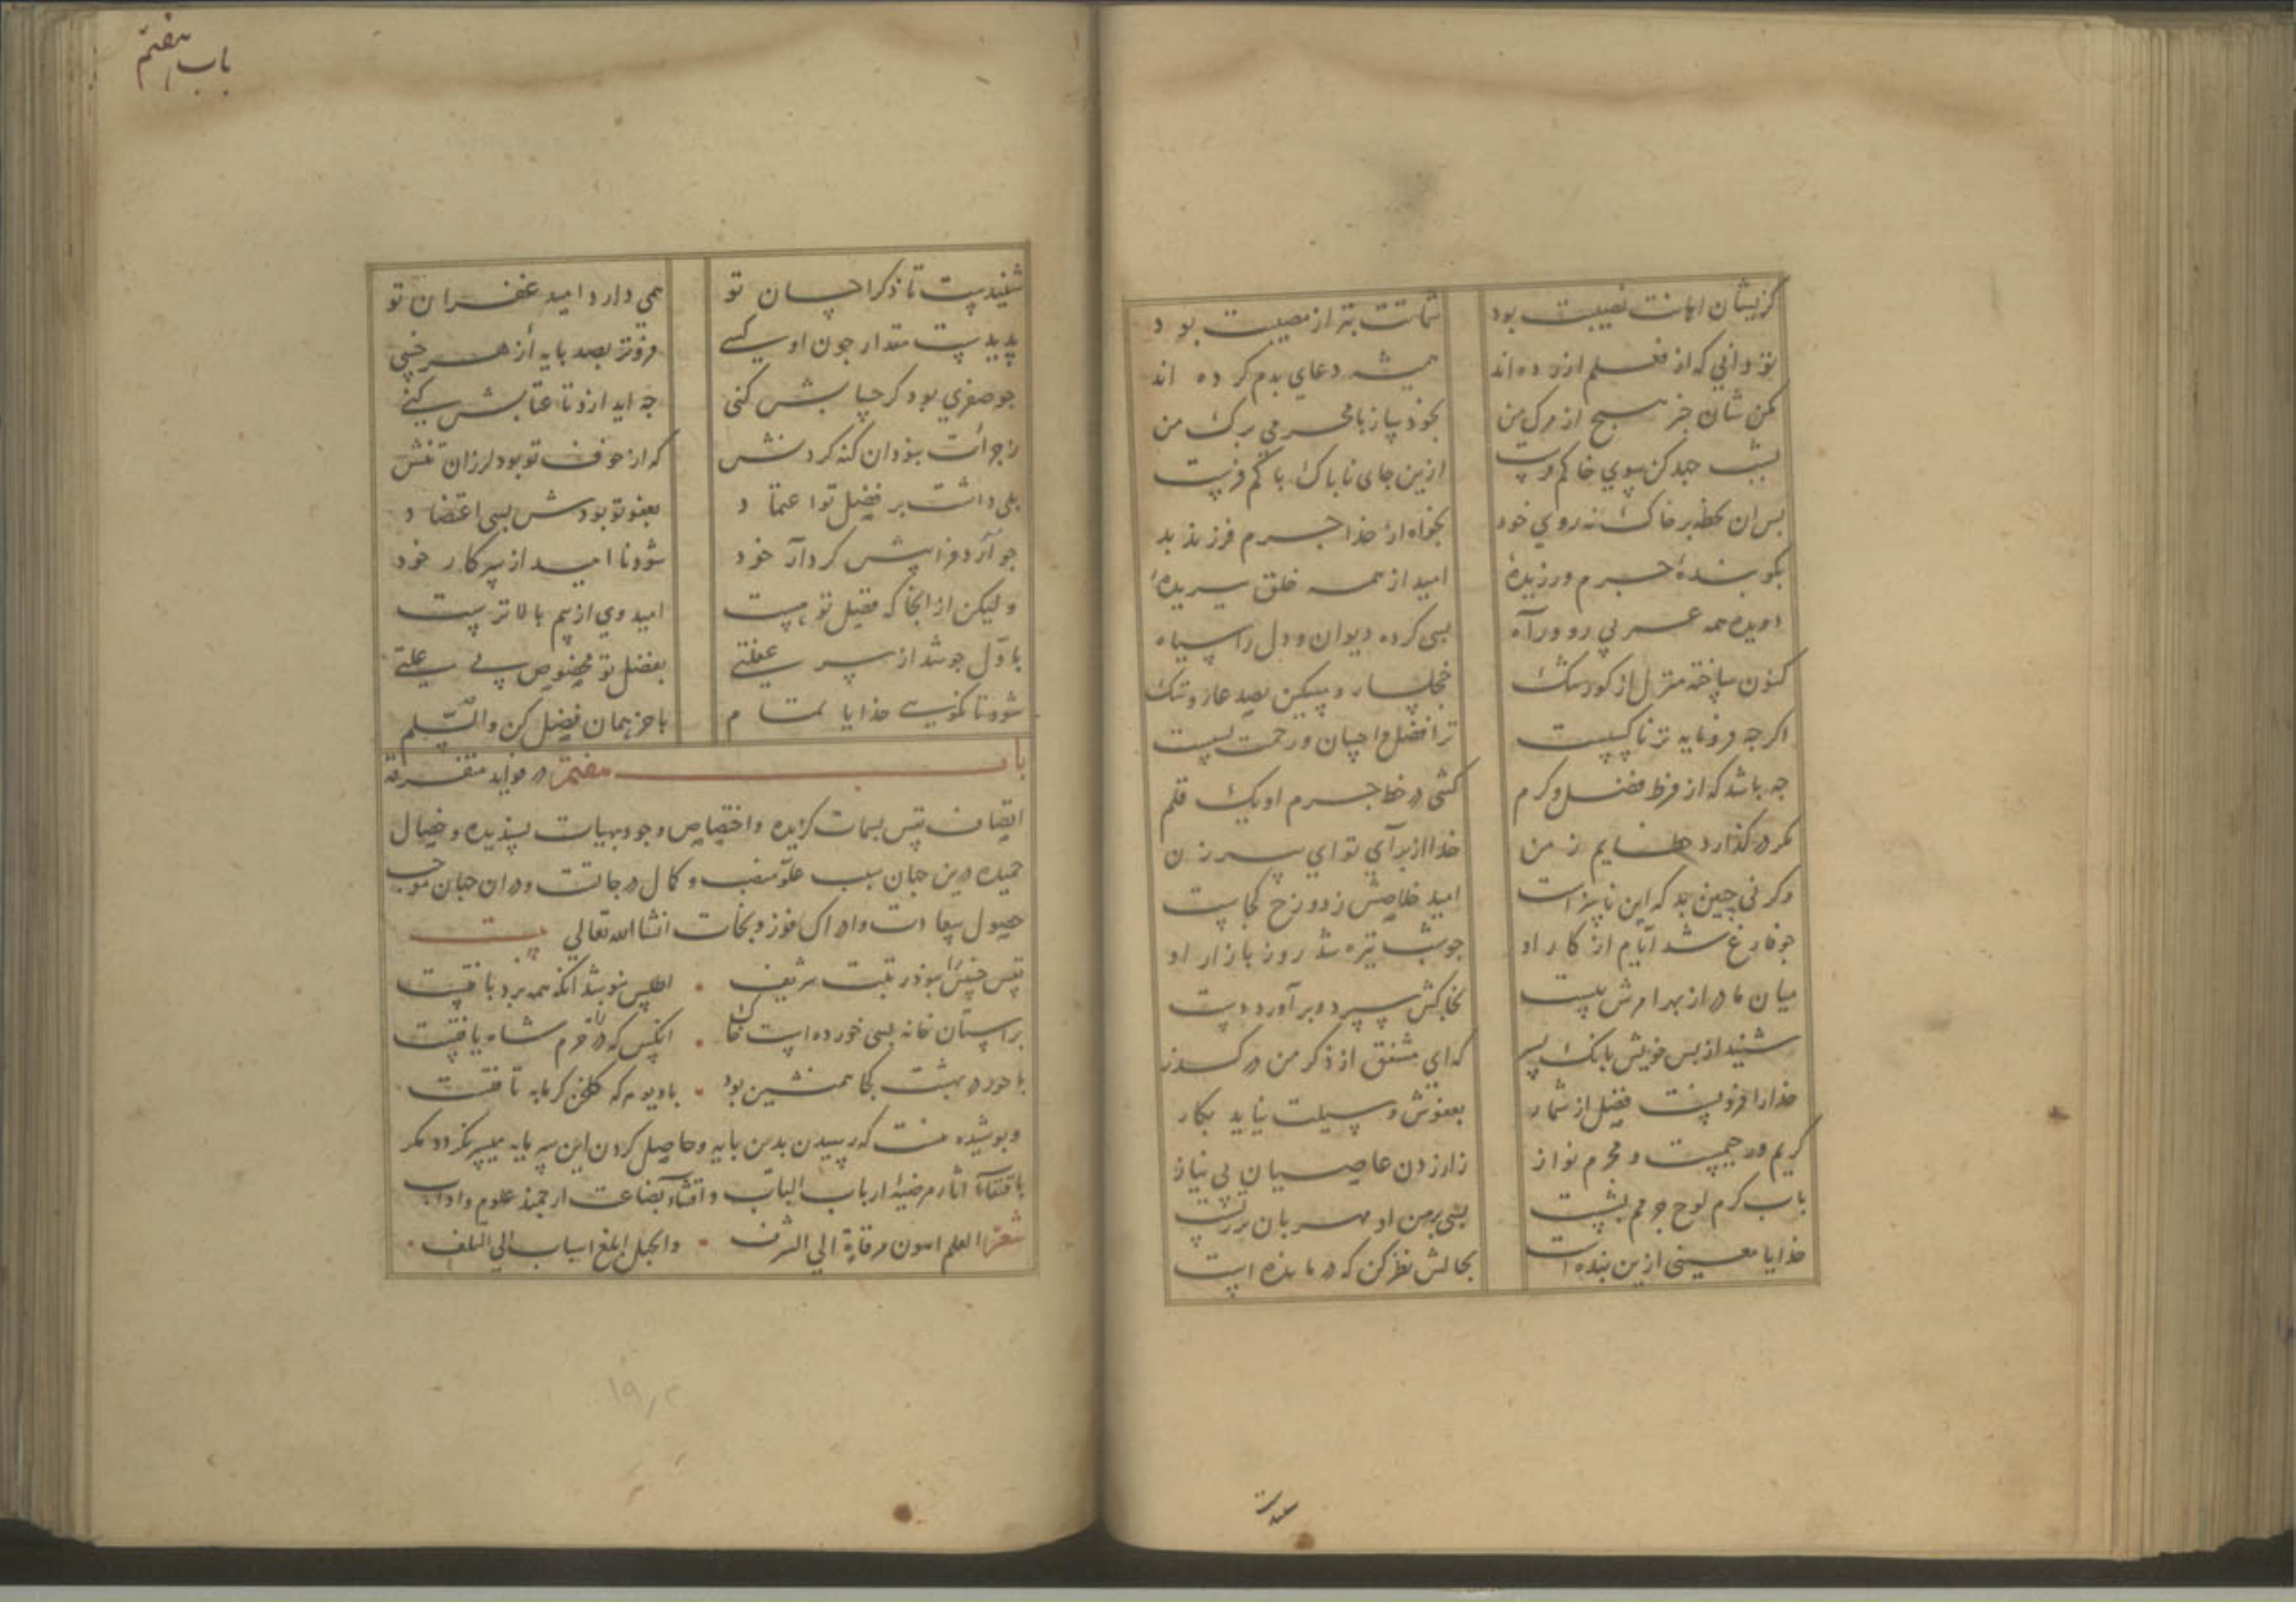 کزیشان اهانت نصیبت بود شماتت بتر از مصیبت بود
تو دانی که از فعلم ازرده اند همیشه دعای بدم کرده اند
مکن شان خبر هیچ از مرک من بخود ساز با محرمی برک من
بشب جهد کن سوی خاکم فرست ازین جای ناباک باکم فرست
بس ان لحظه بر خاک نه روی خود بخواه از خدا جرم فرزند بد
بکو بندهٔ جرم ورزیدهٔ امید از همه خلق ببریدهٔ
دویده همه عمر بی رو و راه بسی کرده دیوان و دل را سیاه
کنون ساخته منزل از کور تنک خجلسار و مسکین بصد عار و ننک
اکرجه فرومایه تر ناکسیست ترا فضل و احسان و رحمت بسیست
جه باشد که از فرط فضل و کرم کشی در خط جرم او یک قلم
مکر در کذارد خطایم ز من خدا از برای تو ای پیر زن
وکر نی جنین بد که این ناسزاست امید خلاصش ز دوزخ کجاست
جو فارغ شد ایام از کار او جو شب تیره شد روز بازار او
میان مادر از بهر امرش ببست بخاکش سپرد و بر آورد دست
شنید از بس خویش بانک پسر که ای مشفق از ذکر من در کذر
خدا را فزونست فضل از شمار بعفوش وسیلت نیاید بکار
کریم و رحیمست و مجرم نواز ز ازردن عاصیان بی نیاز
باب کرم لوح جرمم بشست بسی بر من او مهربان تر ز تست
خدایا معینی ازین بنده است بحالش نظر کن که درمانده است
باب هفتم
شنیدست تا ذکر احسان تو همی دارد امید غفران تو
پدیدست مقدار جون او کسی فروتر بصد بایه از هر خسی
جو صفری بود کر حسابش کنی جه اید ازو تا عتابش کنی
ز جرأت نبود ان کنه کردنش که از خوف تو بود لرزان تنش
بلی داشت بر فضل تو اعتماد بعفو تو بودش بسی اعتضاد
جو آرد فرا پیش کردار خود شود نا امید از سر کار خود
ولیکن از انجا که فضل تو هست امید وی از بیم بالاترست
باول جو شد از سر غفلتی بفضل تو مخصوص بی علتی
شود تا نکویی خدایا تمام باخر همان فضل کن والسلم
باب هفتم در فواید متفرقه
اتصاف نفس بسمات کزیده و اختصاص وجود بهیات پسندیده و خصال
حمیده درین جهان سبب علو منصب و کمال درجاتست و در ان جهان موجب
حصول سعادت و ادراک فوز و نجات انشا الله تعالی بیت
نفس خسیس را نبود رتبت شریف اطلس نپوشد انکه همه برد بافتست
بر استان خانه بسی خورده است خاک انکس که ره در حرم شاه یافتست
با حور در بهشت کجا همنشین بود با دیو هر که کلخن کرمابه تافتست
و بوشیده نیست که رسیدن بدین بایه و حاصل کردن این سرمایه میسر نکردد مکر
باقتفاء آثار مرضیهٔ ارباب الباب و اقتناء بضاعت ارجمند علوم و اداب
شعر العلم اسون مرقاة الی الشرف والجهل ابلغ اسباب الی التلف